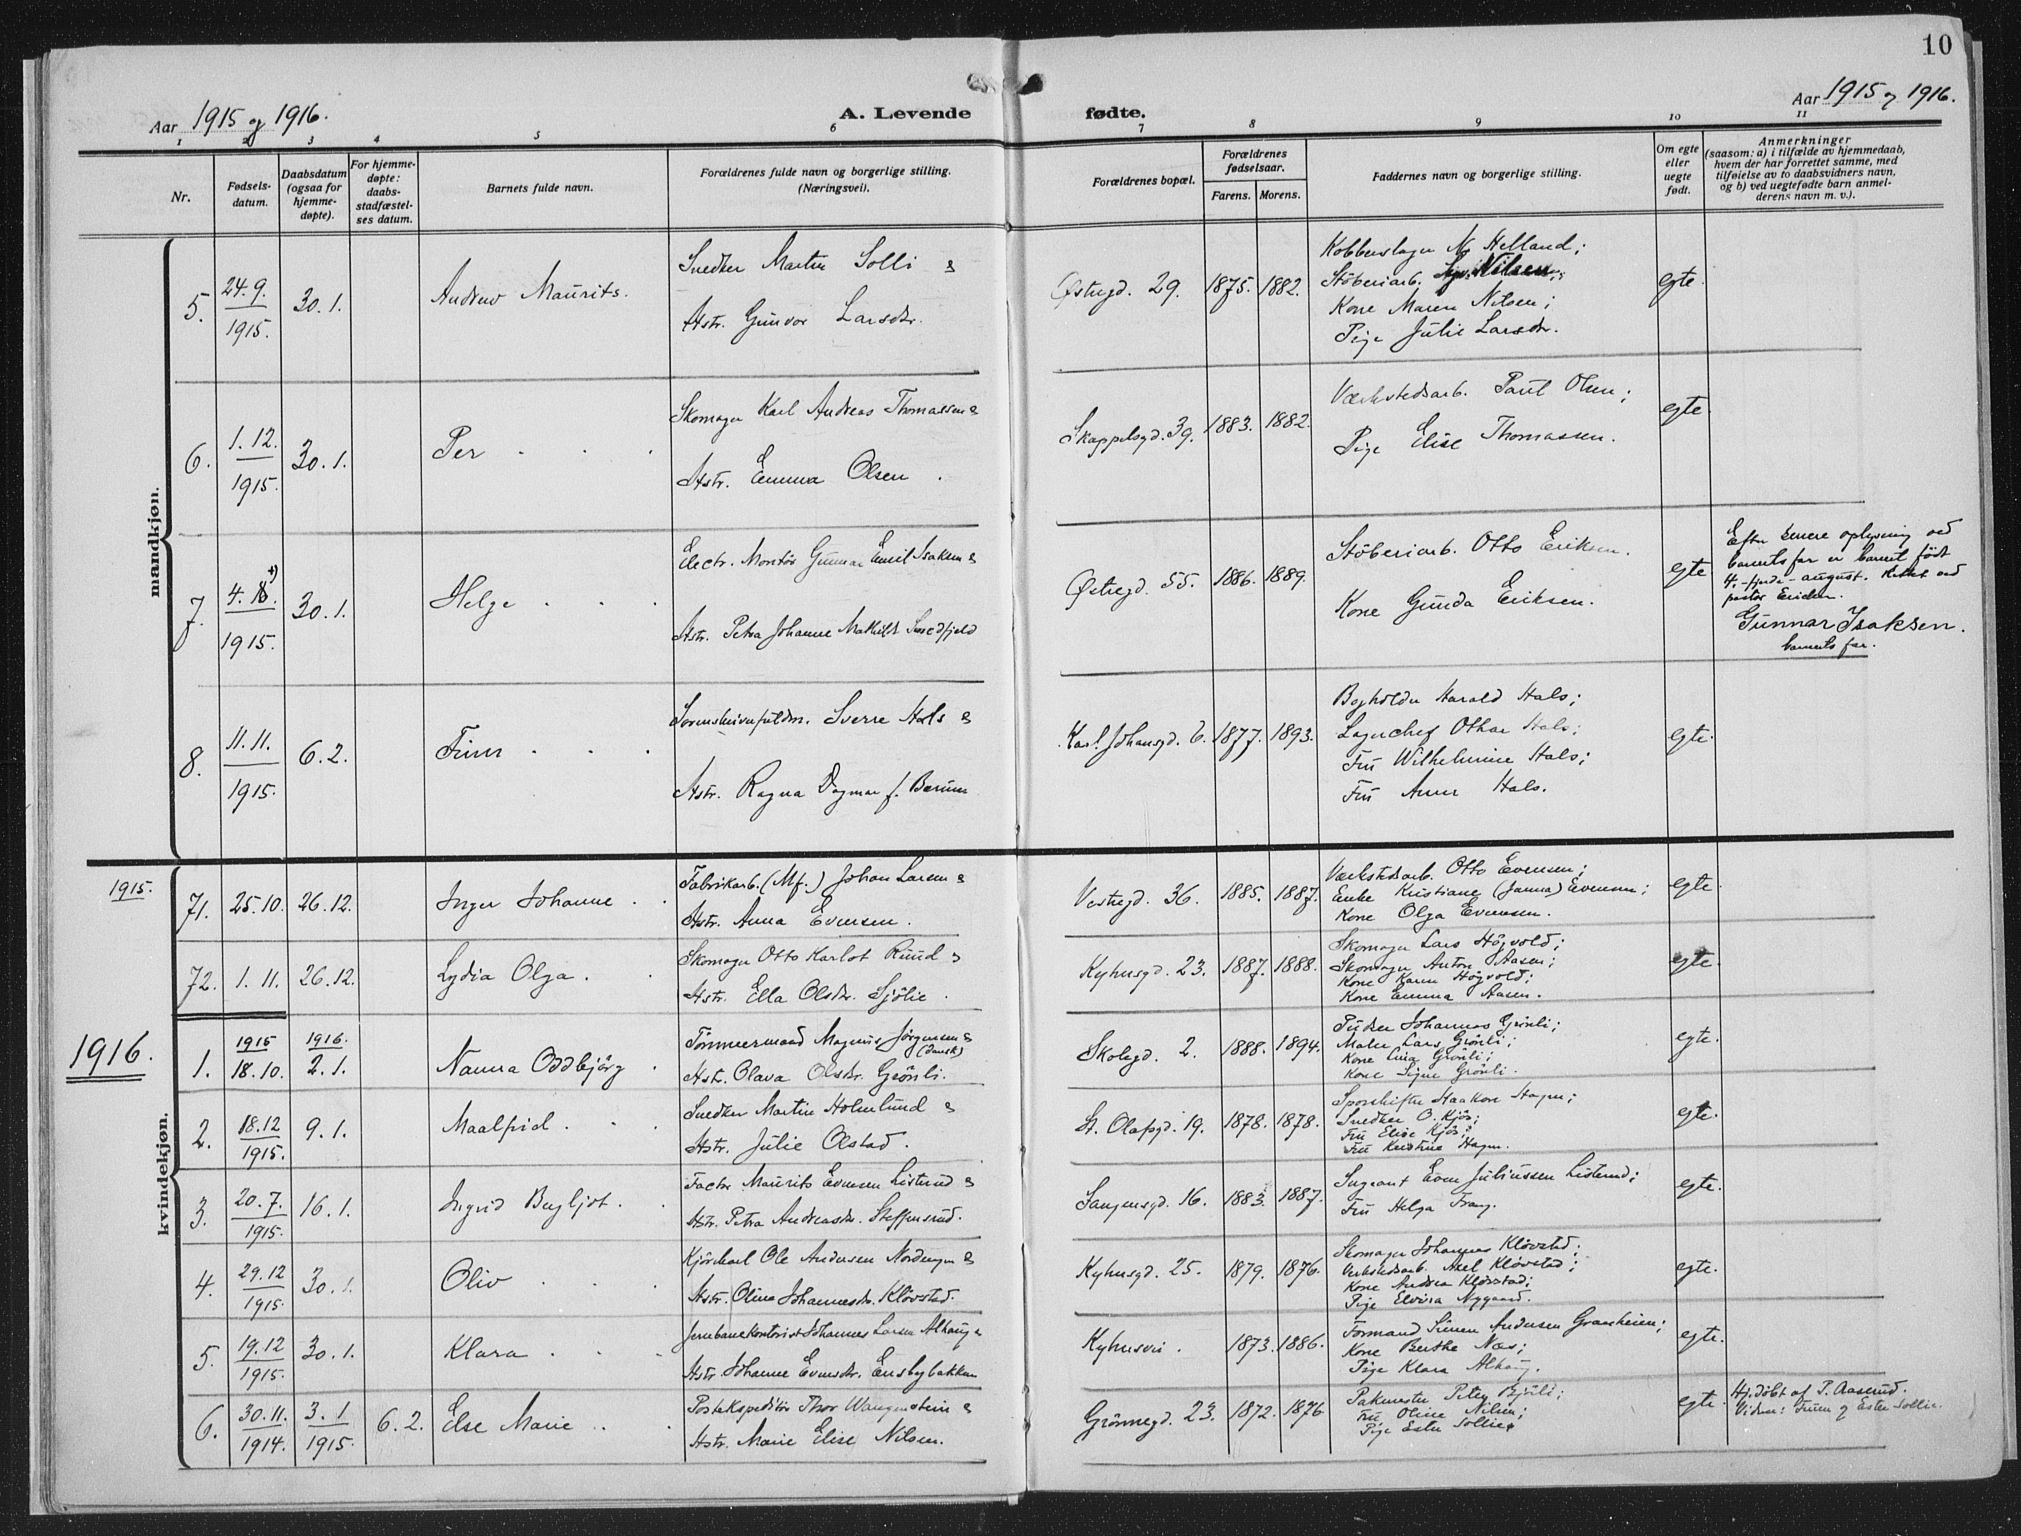 10
Aar 1915 og 1916.
A. Levende fødte.
Aar 1915 og 1916.
1 2 3 4 5 6 7 8 9 10 11
Nr.
Fødsels-
datum.
Daabsdatum
(ogsaa for
hjemme-
døpte).
For hjemme-
døpte:
daabs-
stadfæstel-
ses datum.
Barnets fulde navn.
Forældrenes fulde navn og borgerlige stilling.
(Næringsvei).
Forældrenes bopæl.
Forældrenes
fødselsaar.
Farens. Morens.
Faddernes navn og borgerlige stilling.
Om egte
eller
uegte
født.
Anmerkninger
(saasom: a) i tilfælde av hjemmedaab,
hvem der har forrettet samme, med
tilføielse av to daabsvidners navn,
og b) ved uegtefødte barn anmel-
derens navn m. v.).
mandkjøn.
5. 24.9. 1915. 30.1. Andrew Maurits.
Snedker Martin Solli &
Hstr. Gunvor Larsdr.
Østregd. 29. 1875. 1882.
Kobberslager N. Helland;
Stöberiarb. Nilsen;
Kone Maren Nilsen;
Pige Julie Larsdr.
egte.
6. 1.12. 1915. 30.1. Per
Skomager Karl Andreas Thomassen &
Hstr. Emma Olsen.
Skappelsgd. 39. 1883. 1882.
Værkstedsarb. Paul Olsen;
Pige Elise Thomassen.
egte.
7. 4.8.+) 1915. 30.1. Helge
Electr. Montör Gunnar Emil Isaksen &
Hstr. Petra Johanne Mathilde Smedfjeld
Østregd. 55. 1886. 1889.
Stöberiarb. Otto Eriksen.
Kone Gunda Eriksen.
egte
Efter senere oplysning ved
barnets far er barnet født
4.-fjerde-august. Rettet ved
pastor
Gunnar Isaksen.
barnets far.
8. 11.11. 1915. 6.2. Finn
Sorenskriverfuldm. Sverre Hals &
Hstr. Ragna Dagmar f. Bærum
Karl Johansgd. 6. 1877. 1893.
Bogholder Harald Hals;
Lagerchef Othar Hals;
Fru Wilhelmine Hals;
Fru Anna Hals.
egte.
kvindekjøn.
1915.
71. 25.10. 26.12. Inger Johanne
Fabrikarb. (Mf.) Johan Larsen &
Hstr. Anna Evensen.
Vestregd. 36. 1885. 1887.
Værkstedsarb. Otto Evensen;
Enke Kristiane (Janna) Evensen;
Kone Olga Evensen.
egte.
72. 1. 11. 26.12. Lydia Olga.
Skomager Otto Karlot Ruud &
Hstr. Ella Olsdr. Sjölie.
Kyhusgd. 23. 1887. 1888.
Skomager Lars Högvold;
Skomager Anton Aasen;
Kone Karen Högvold;
Kone Emma Aasen.
egte.
1916.
1. 1915 18.10. 1916. 2.1. Nanna Oddbjörg
Tömmermand Magnus Jörgensen &
(dansk)
Hstr. Olava Olsdr. Grönli.
Skolegd. 2. 1888. 1894.
Pudser Johannes Grönli;
Maler Lars Grönli;
Kone Lina Grönli;
Kone Signe Grönli.
egte.
2. 18.12 1915. 9.1. Maalfrid
Snedker Martin Holmlund &
Hstr. Julie Olstad.
St. Olafsgd. 19. 1878. 1878.
Sporskifter Haakon Hagen;
Snedker O. Kjös;
Fru Elise Kjös;
Fru Kristine Hagen.
egte.
3. 20.7. 1915. 16.1. Ingrid Bergljot.
Factor Maurits Evensen Listerud &
Hstr. Petra Andreasdr. Steffensrud.
Fangensgd. 16. 1883. 1887.
Sergeant Even Juliussen Listerud;
Fru Helga Frang.
egte.
4. 29.12 1915. 30.1. Oliv
Kjörekarl Ole Andersen Nordengen &
Hstr. Olina Johannesdr. Klövstad.
Kyhusgd. 25. 1879. 1876.
Skomager Johannes Klövstad;
Verkstedsarb. Axel Klövstad;
Kone Andrea Klövstad;
Pige Elvira Nygaard.
egte.
5. 19.12 1915. 30.1. Klara
Jernbanekontorist Johannes Larsen Alhaug &
Hstr. Johanne Evensdr. Ensbybakken
Kyhusvei. 1873. 1886.
Formand Simen Andersen Granheien;
Kone Berthe Næs;
Pige Klara Alhaug.
egte.
6. 30.11. 1914. 3.1 1915. 6.2. Else Marie
Postekspeditör Thor Wangenstein &
Hstr. Marie Elise Nilsen.
Grönnegd. 23. 1872. 1876
Pakmester Peter Björli;
Fru Oline Nilsen;
Pige Ester Sollie.
egte.
Hj.döbt af P. Aaserud.
Vidner: Fruen og Ester Sollie.